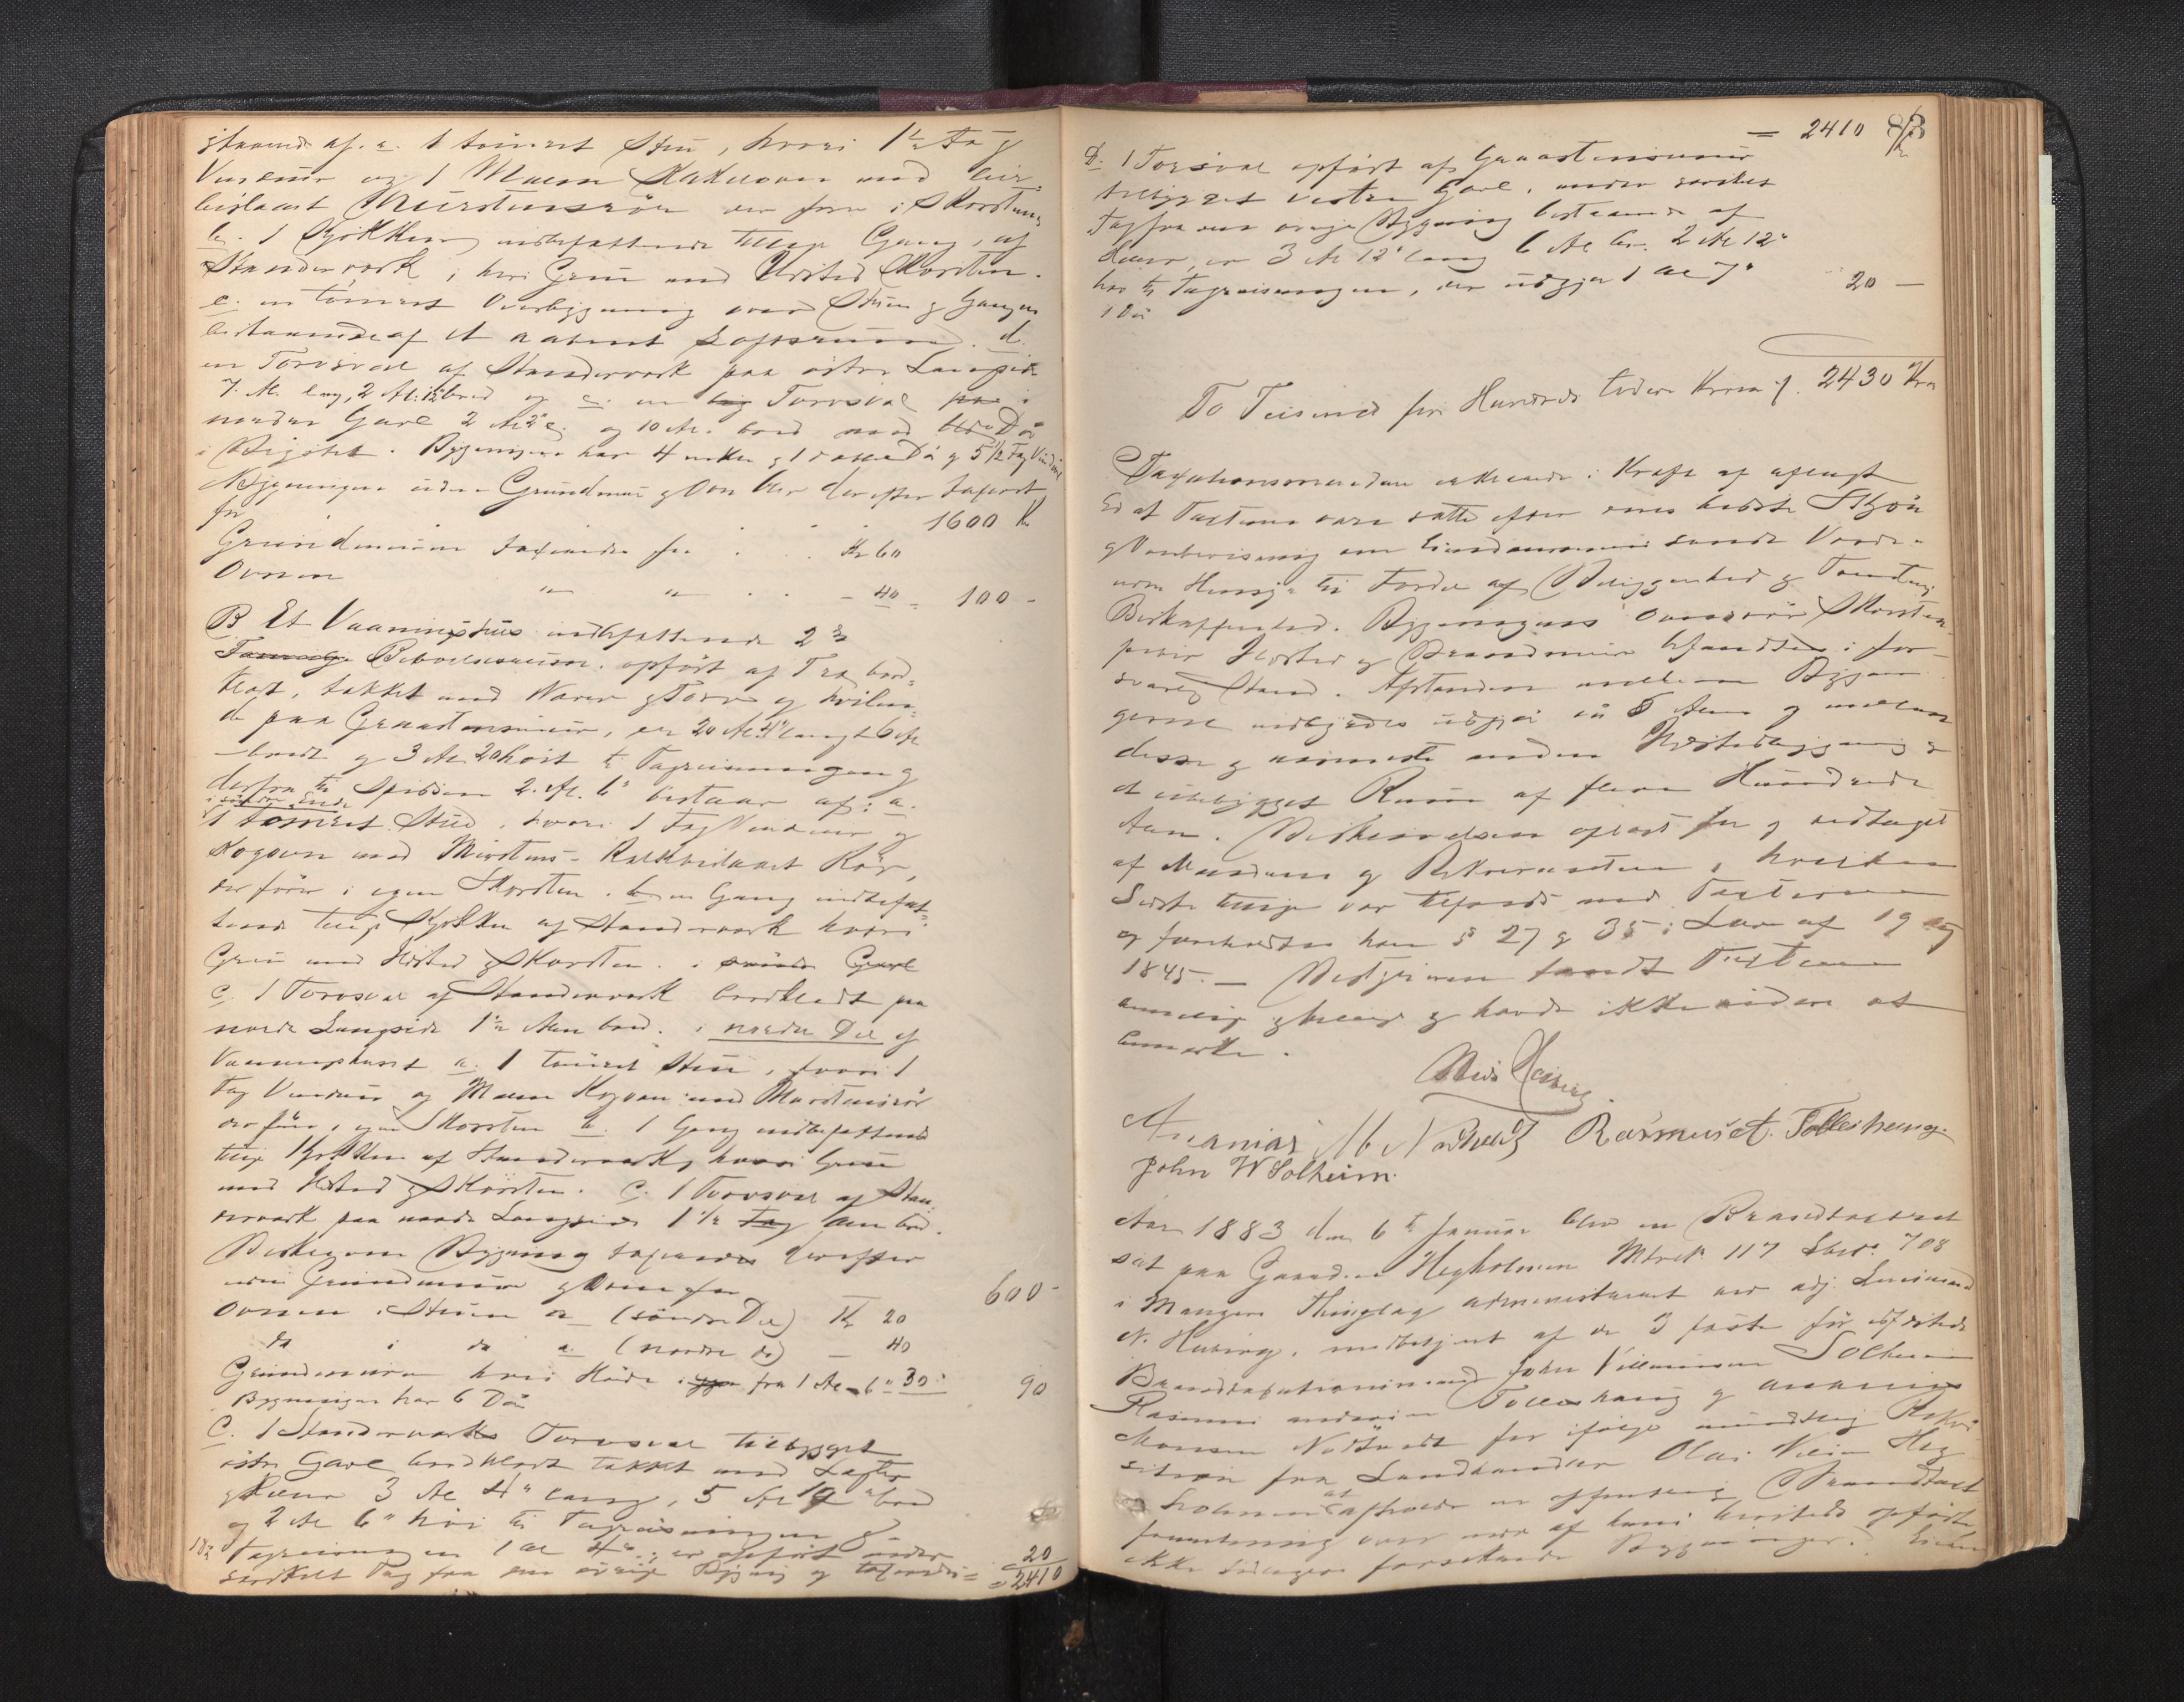 staaende af. a. 1 tømret Stue, hvori 1½ Fag
Vinduer og 1 Malm Kakkelovn med
Muurstensrør der fører i Skorsten
b. 1 Kjøkken indbefattende tillige Gang, af
Standerværk, hvori Grue med Ildsted Skorsten.
c. en tømret Overbygning over Stuen og Gangen
bestaaende af et aabent Loftsrum. d.
en Torvsval af Standerværk paa østre Langside
7 Al. lang, 2 Al. 12" bred og e. en Torvsval i
nordre Gavl 2 Al 2" og 10 Al. bred med Dør
i Bygningen har 4 enkle g 1 Dør g 5½ Fag Vinduer
Bygningen uden Grundmur g Ovn blev derefter taxeret
for 1600 Kr
Grundmuren taxeredes for . . . Kr 60
Ovnen " " . . - 40 = 100 -
B. Et Vaaningshus indbefattende 2de
Familje Beboelsesrum opført af Træ bord-
klædt, takket med Næver g Torv og hvilen-
de paa Graastensmuur, er 20 Al 4" langt 6 Al
bredt g 3 Al. 20 høit til Tagreisningen g
derfra til Spidsen 2. Al. 6" bestaar af: a.
i søndre Ende
1 tømret Stue, hvori 1 Fag Vinduer og
Kogovn med Murstens- Rør,
der fører i egen Skorsten. b. en Gang indbefat-
tende tillige Kjøkken af Standerværk hvori
Grue med Ildsted g Skorsten. i søndre Gavl
c. 1 Torvsval af Standerværk bordklædt paa
nordre Langside 1½ Alen bred. i nordre Del af
Vaaningshuset a. 1 tømret Stue, hvori 1
Fag Vinduer og Malm Kogovn med Murstensrør
der fører i egen Skorsten b. 1 Gang indbefattende
tillige Kjøkken af Standerværk, hvori Grue
med Ildsted g Skorsten. C. 1 Torvsval af Stan-
derværk paa nordre Langside 1½ Fag Alen bred.
Bygning taxeredes derefter
uden Grundmuur g Ovne for 600 -
Ovnen i Stuen a (søndre Del) Kr 20
do i do a. (nordre do) - 40
Grundmuren hvis Høide fra 1 Al - 6" 30 90
Bygningen har 6 Døre
C. 1 Standerværks Torvsval tilbygget
østre Gavl bordklædt takket med
3 Al 4" lang, 5 Al 19" bred
og 2 Al 6" høi til Tagreisningen g
1 Dør Tagreisningen 1 Al 4", er opført under
særskilt Tag fra den øvrige Bygning og taxeredes = 20
= 2410
= 2410 83
D. 1 Torvsval opført af Graastensmuur
tilbygget vestre Gavl, under særskilt
Tag fra den øvrige Bygning bestaaende af
er 3 Al 12" lang 6 Al br. 2 Al 12"
høi til Tagreisningen, der udgjør 1 Al 7" 20 -
1 Dør
To Tusinde fire Hundrede tredive Kroner 2430 Kr
Taxationsmændene erklærede i Kraft af aflagt
Ed at Taxterne vare satte efter deres bedste Skjøn
g Overbevisning om Eiendommens sande Værdi
uden Hensyn til Fordel af Beliggenhed g Tomtens
Beskaffenhed. Bygningens Ovnsrør Skorsten-
piber Ildsted g Brandmure befandtes i for-
svarlig Stand. Afstanden mellem Bygnin-
gerne indbyrdes udgjør 8 Alen g mellem
disse g nærmeste anden Ildstedbygning er
et ubebygget Rum af flere Hundrede
Alen. Beskrivelsen oplæst for g vedtaget
af Mændene g Rekvirenten, hvilken
Sidste tillige var tilfreds med Taxterne
og foreholdtes ham § 27 g 35 i Lov af 19 Aug
1845. — Bestyreren fandt Taxterne
g havde ikke videre at
bemærke.
Ananias M. Nodtvedt Rasmus A. Tolleshaug.
John W Solheim.
Aar 1883 den 6te Januar blev en Brandtaxt
sat paa Gaarden Hegholmen Matr N 117 Lbno. 708
i Mangers Thinglag administreret ved adj. Lensmand
N. Husing, medbetjent af de 3 faste før edfæstede
Brandtaxationsmænd John Villumsen Solheim
Rasmus Andersen Tolleshaug g Ananias
Monsen Nodtvedt for ifølge mundtlig Rekvi-
sition fra Landhandler Olai Heg-
holmen at afholde en offentlig Brandtaxt
forretning over nogle af hans herstede opførte
ikke tidligere forsikrede Bygninger.